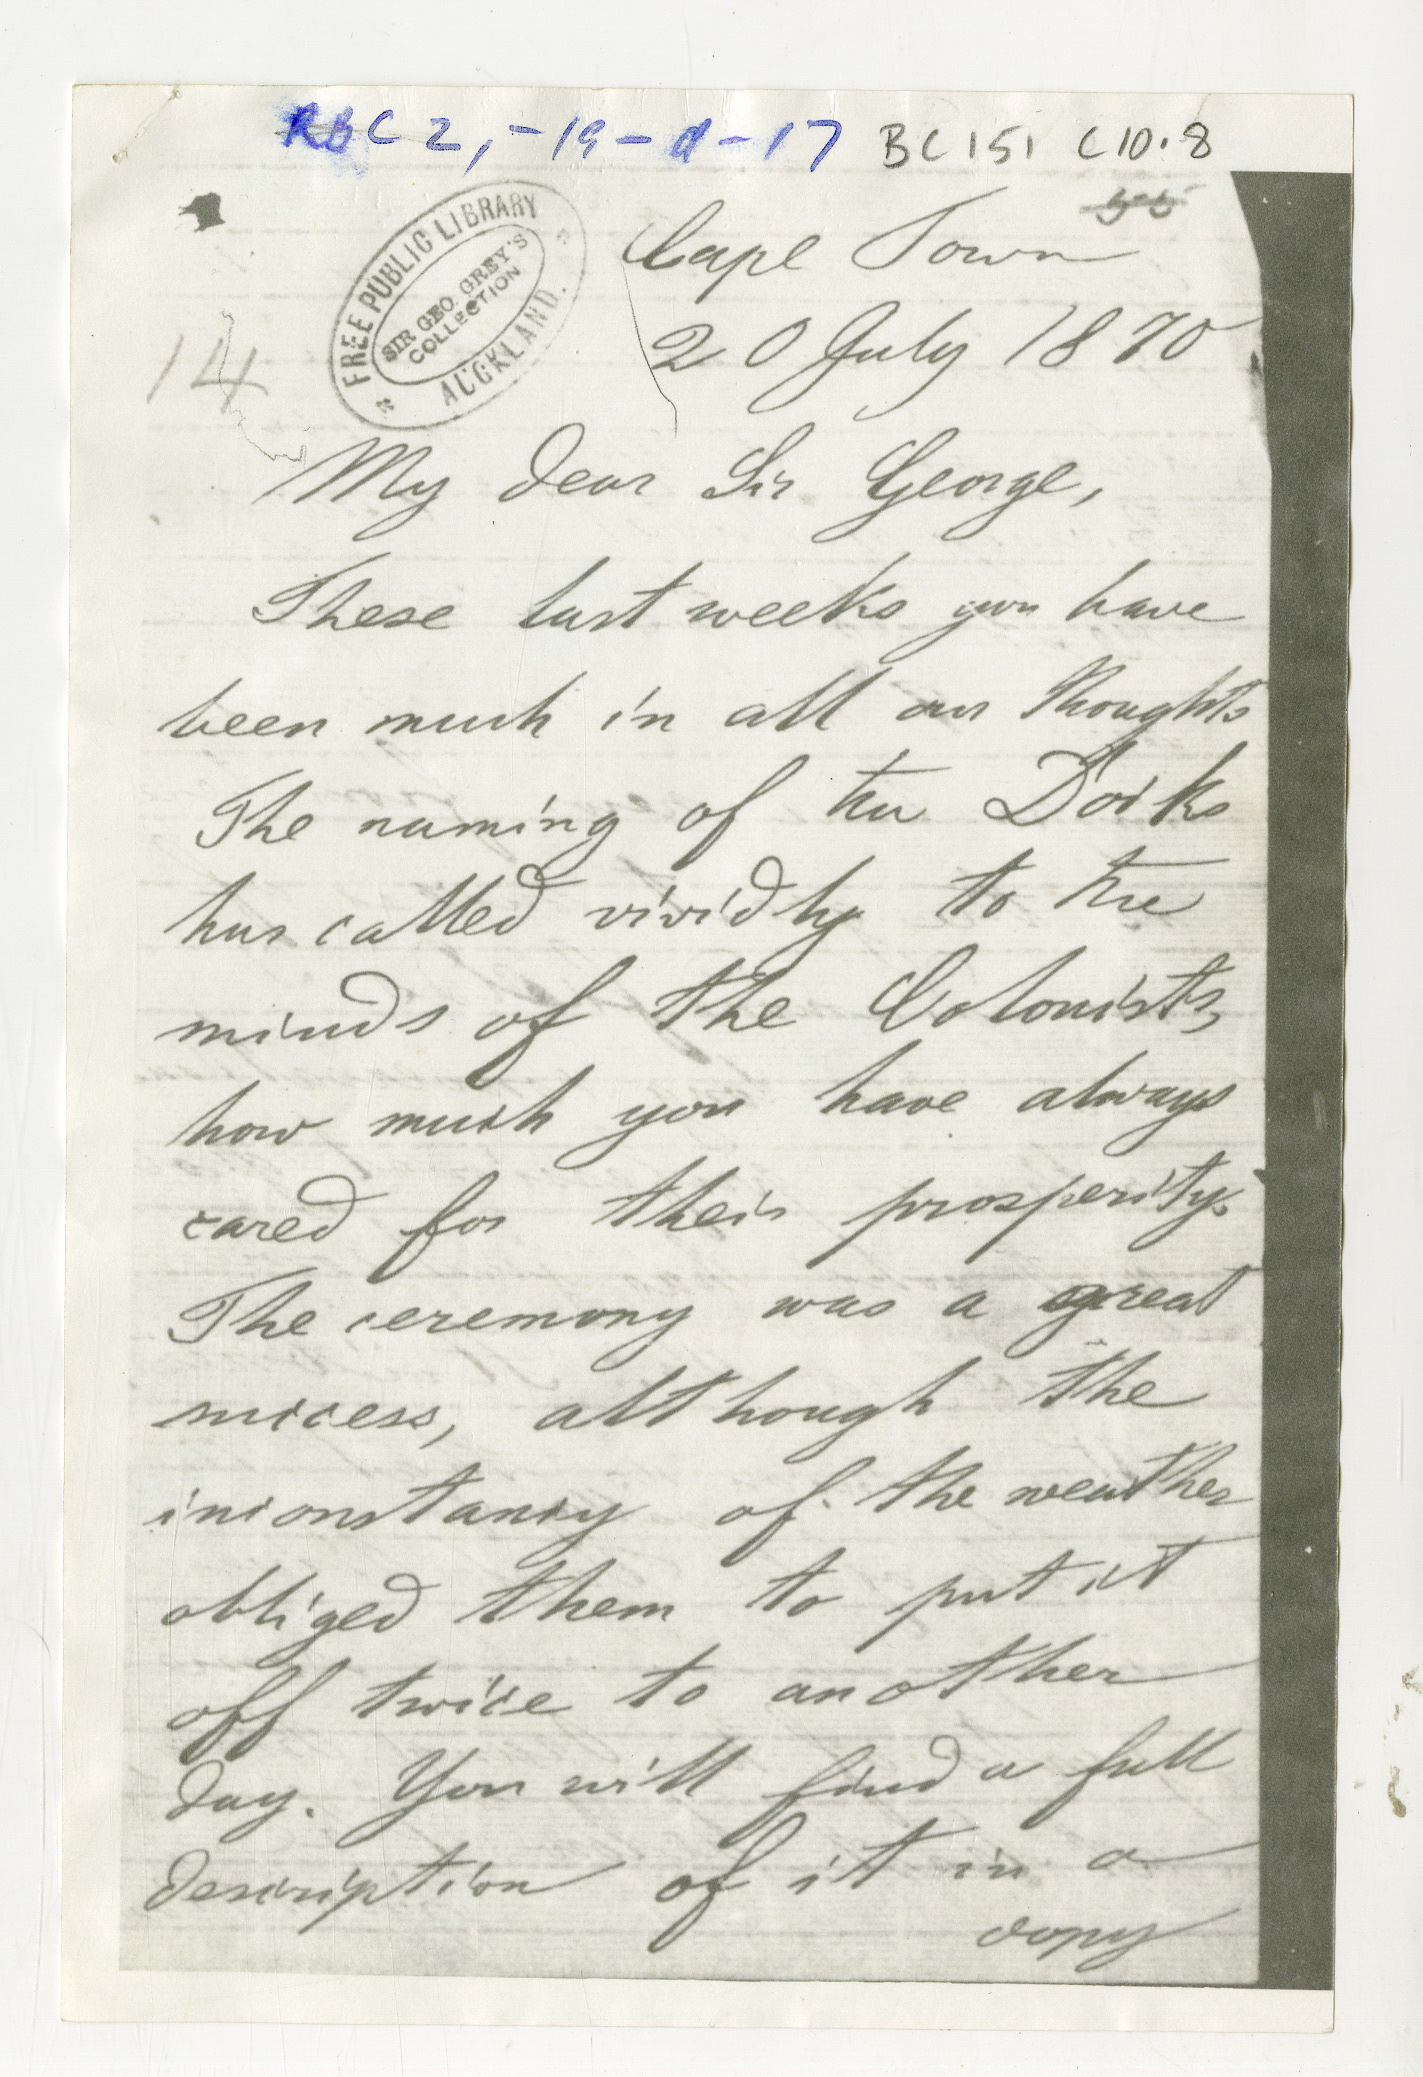 C 2, -19-d-17 BC151 C10.8
FREE PUBLIC LIBRARY
SIR GEO. GREY'S
COLLECTION
AUCKLAND.
14
Cape Town
20 July 1870
My dear Sir George,
These last weeks you have
been much in all our thoughts
The naming of the Docks
has called vividly to the
minds of the Colonists,
how much you have always
cared for their prosperity.
The ceremony was a great
success, although the
inconstancy of the weather
obliged them to put it
off twice to another
day. You will find a full
description of it in a
copy